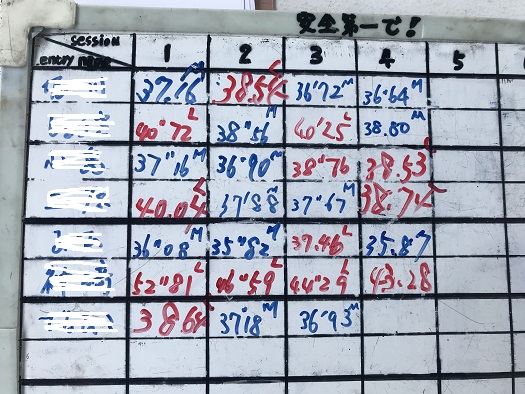 安全第一で!
session
entry name 1 2 3 4 5
37.16 M 38.54 L 36"72 M 36"64 M
40"72 L 38"56 M 40"25 L 38.80 M
37"16 M 36"90 M 38"76 38.53 L
40.04 L 37'88 M 37"67 M 38.74 L
36"08 M 35"82 M 37.46 L 35.87
52"81 L 46"59 L 44"29 L 43.28
38.64 L 37"18 M 36"93 M